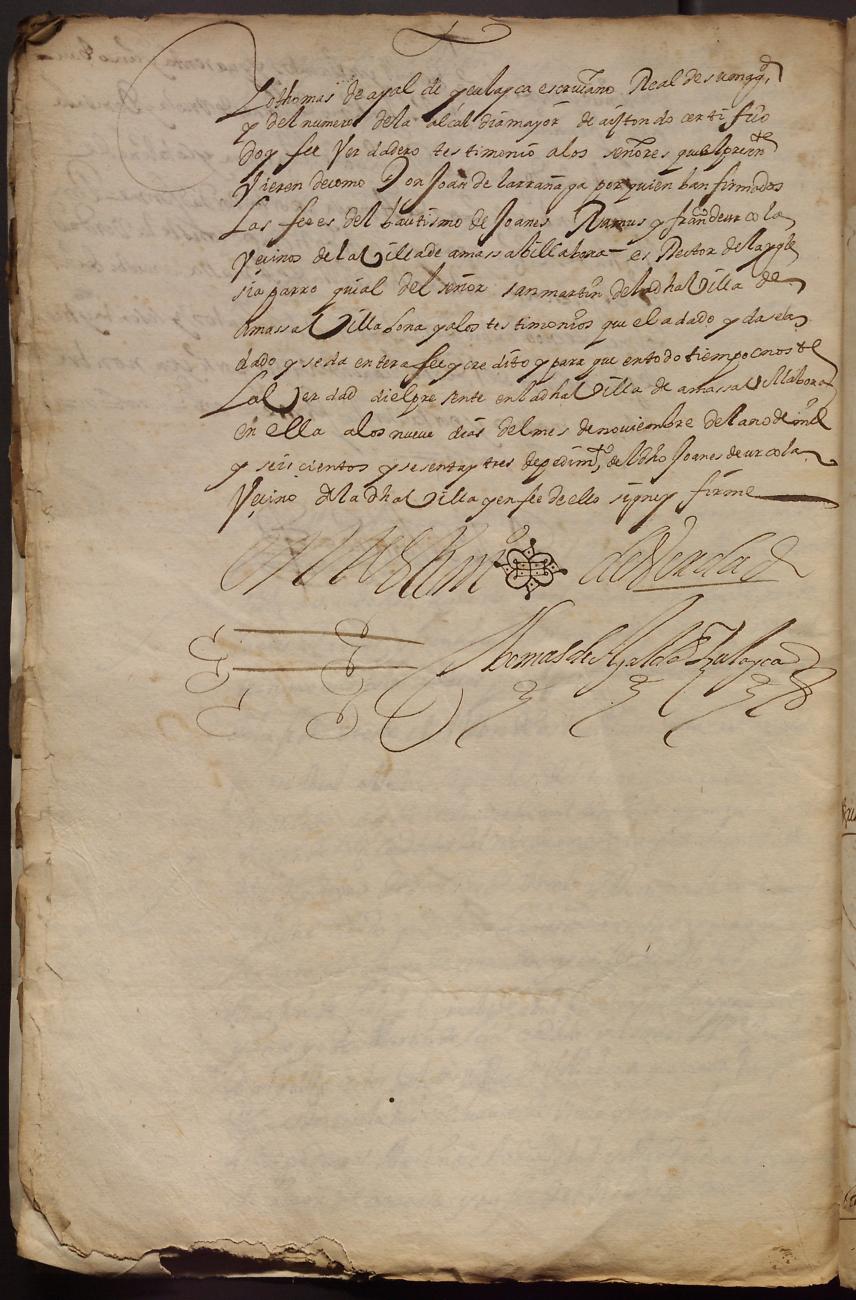 Yo thomas de ayal de yçulayca escriuano Real de su magd
y del numero de la alcaldia mayor de aiztondo certifico
Doy fee Verdadero testimonio a los señores que el presente
Vieren de como Don Joan de larrañaga por quien ban firmados
Las fees del bautismo de Joanes Ramus y franco de urcola
Veçinos de la Villa de amassa billabona es Rector de la ygle
sia parroquial del señor san martin de la dha Villa de
amassa Villabona y a los testimonios que el a dado y da se ha
dado y se da entera fee y credito y para que en todo tiempo conste
La Verdad di el presente en la dha Villa de amassa Villabona
en ella a los nueve dias del mes de noviembre del año de mil
y seis cientos y sesenta y tres de pedimto del dho Joanes de urcola
Veçino de la dha Villa y en fee de ello signe y firme
En testimo de Verdad
Thomas de Ayalde Yçulayca